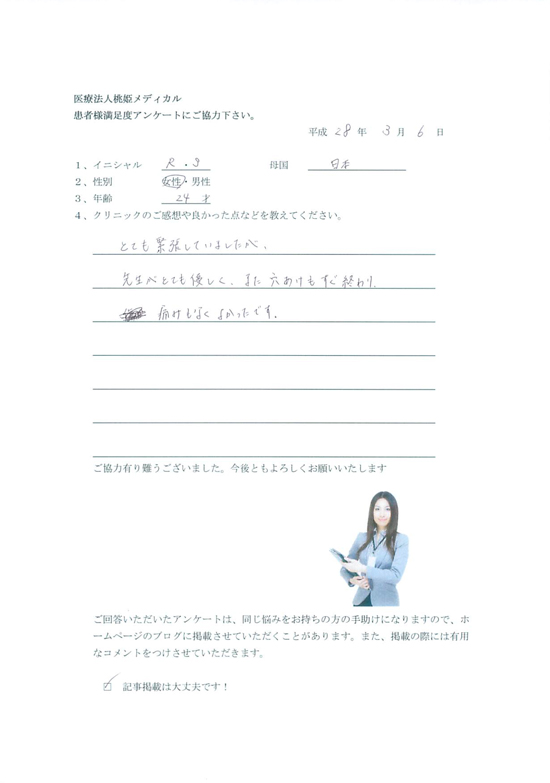 医療法人桃姫メディカル
患者様満足度アンケートにご協力下さい。
平成 28 年 3 月 6 日
1、イニシャル R・S 母国 日本
2、性別 女性・男性
3、年齢 24 才
4、クリニックのご感想や良かった点などを教えてください。
とても緊張していましたが、
先生がとても優しく、また 穴あけもすぐ終わり、
痛みもなく よかったです。
ご協力有り難うございました。今後ともよろしくお願いいたします
ご回答いただいたアンケートは、同じ悩みをお持ちの方の手助けになりますので、ホ
ームページのブログに掲載させていただくことがあります。また、掲載の際には有用
なコメントをつけさせていただきます。
☑ 記事掲載は大丈夫です！